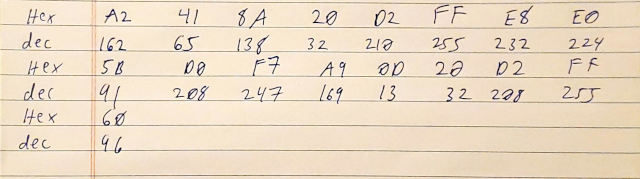 Hex A2 41 8A 20 D2 FF E8 E0
dec 162 65 138 32 210 255 232 224
Hex 5B D0 F7 A9 0D 20 D2 FF
dec 91 208 247 169 13 32 208 255
Hex 60
dec 96